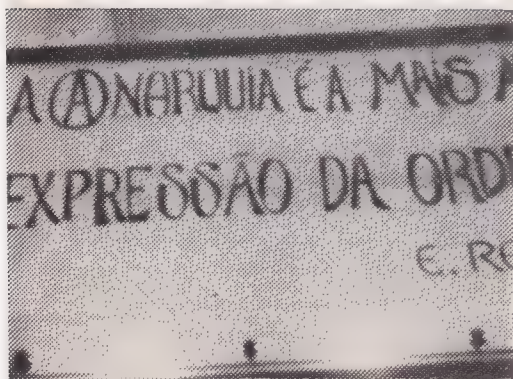 A ANARQUIA É A MAIS A
EXPRESSÃO DA ORD
E. RE